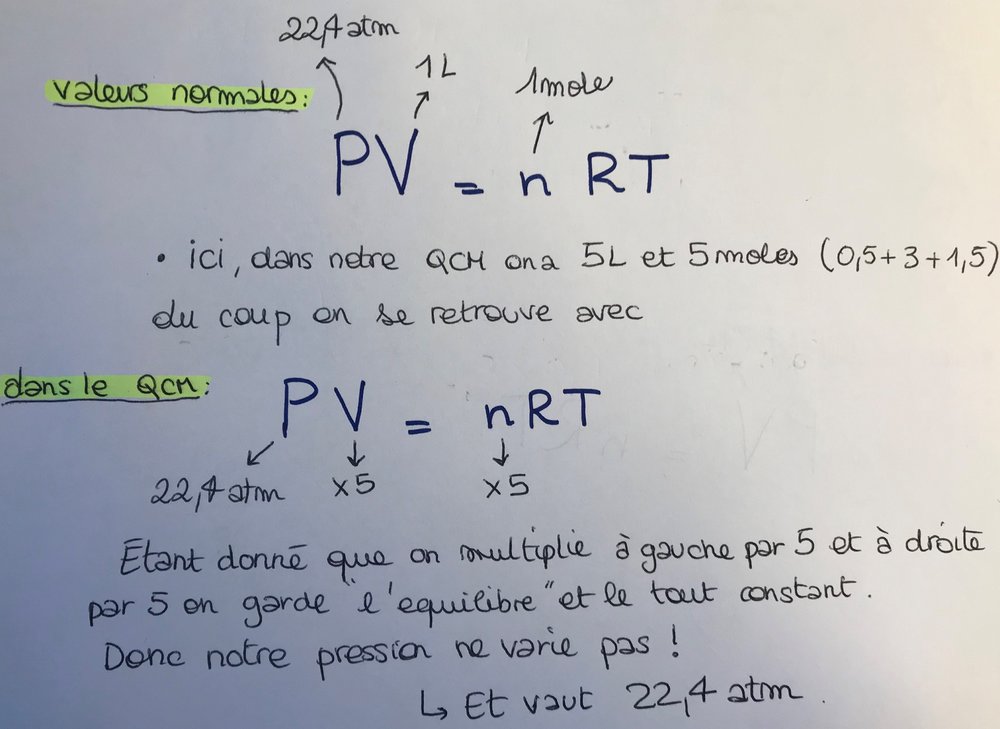 22,4 atm
1L
1mole
valeurs normales:
PV = n RT
• ici, dans notre QCM on a 5L et 5 moles (0,5+3+1,5)
du coup on se retrouve avec
dans le QCM:
PV = nRT
22,4 atm x5 x5
Etant donné que on multiplie à gauche par 5 et à droite
par 5 on garde "l'equilibre" et le tout constant.
Donc notre pression ne varie pas !
↳ Et vaut 22,4 atm.